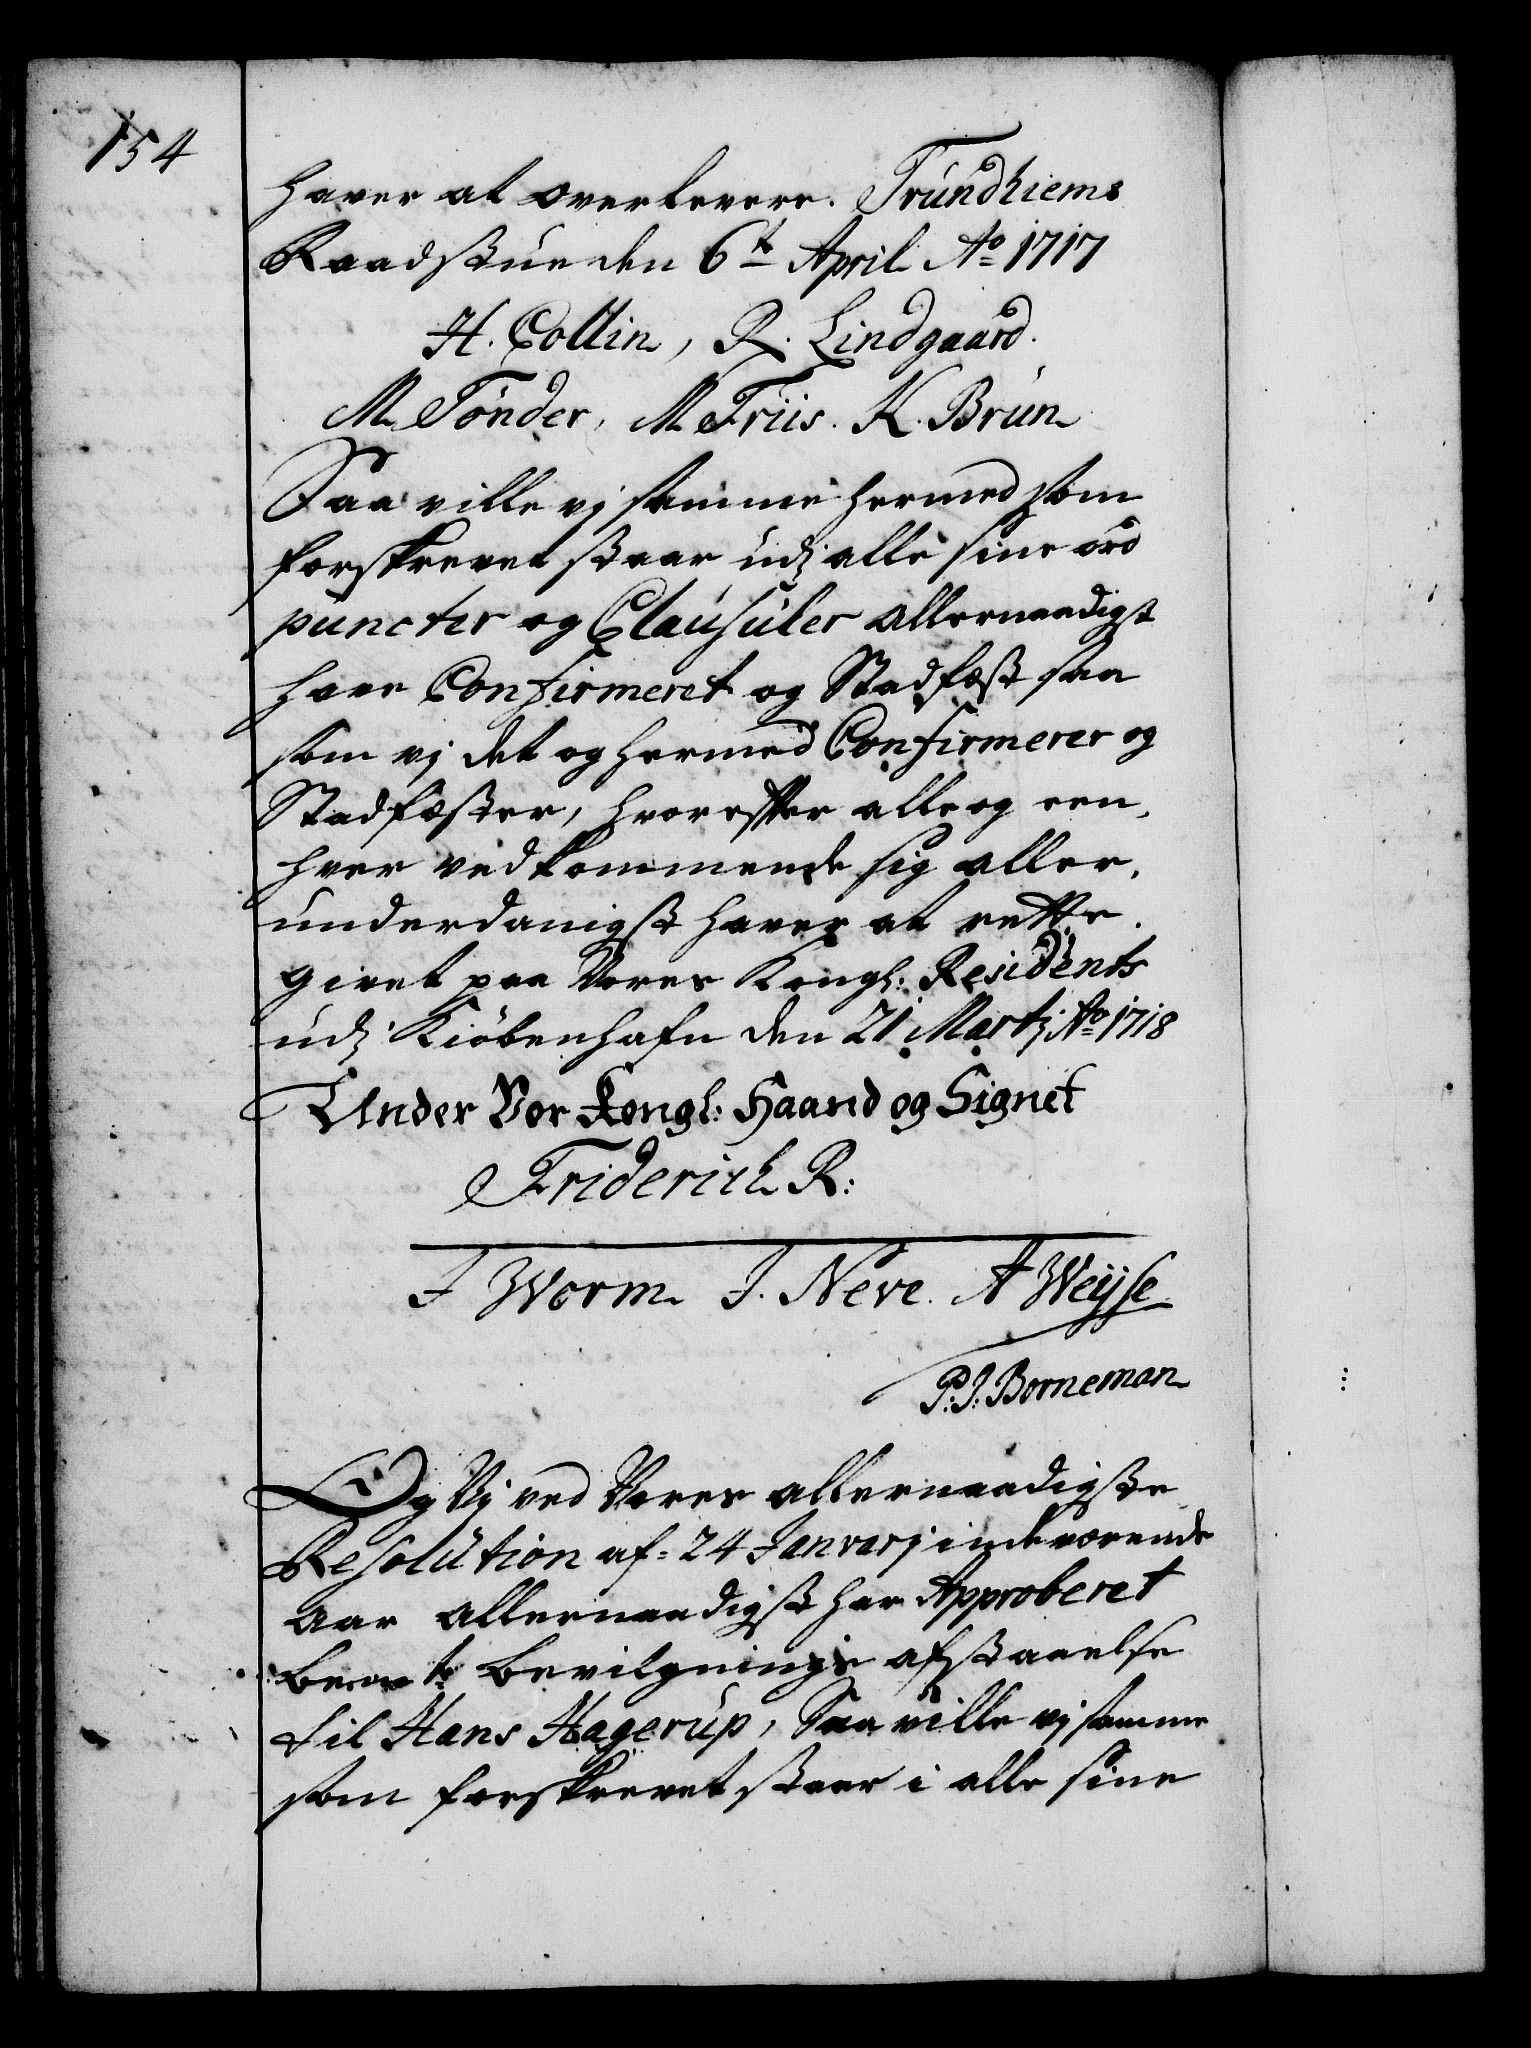 154
hawer at overlevere. Trundhiems
Raadstue den 6t April Ao 1717
H. Collin, R. Lindgaard.
M. Tønder, M Friis. K. Brun
Saa ville vj samme hermed som
forskrevet staar udj alle sine ord
puncter og Clausuler allernaadigst
have Confirmeret og Stadfæst saa
som vj det og hermed Confirmerer og
Stadfæster, hvorefter alle og een,
hver vedkommende sig aller,
underdanigst haver at rette.
givet paa Vores Kongl: Residents
udj Kiøbenhafn den 21 Martj Ao 1718
Under Vor Kongl: Haand og Signet
Friderich R:
F Worm J. Neve. A Weyse
P. J. Borneman
Og Vj ved Vores allernaadigste
Resolution af 24 Janvarj indeværende
aar allernaadigst har Approberet
bevilgnings afstaaelse
til Hans Hagerup, Saa ville vj samme
som forskrevet staar i alle sine